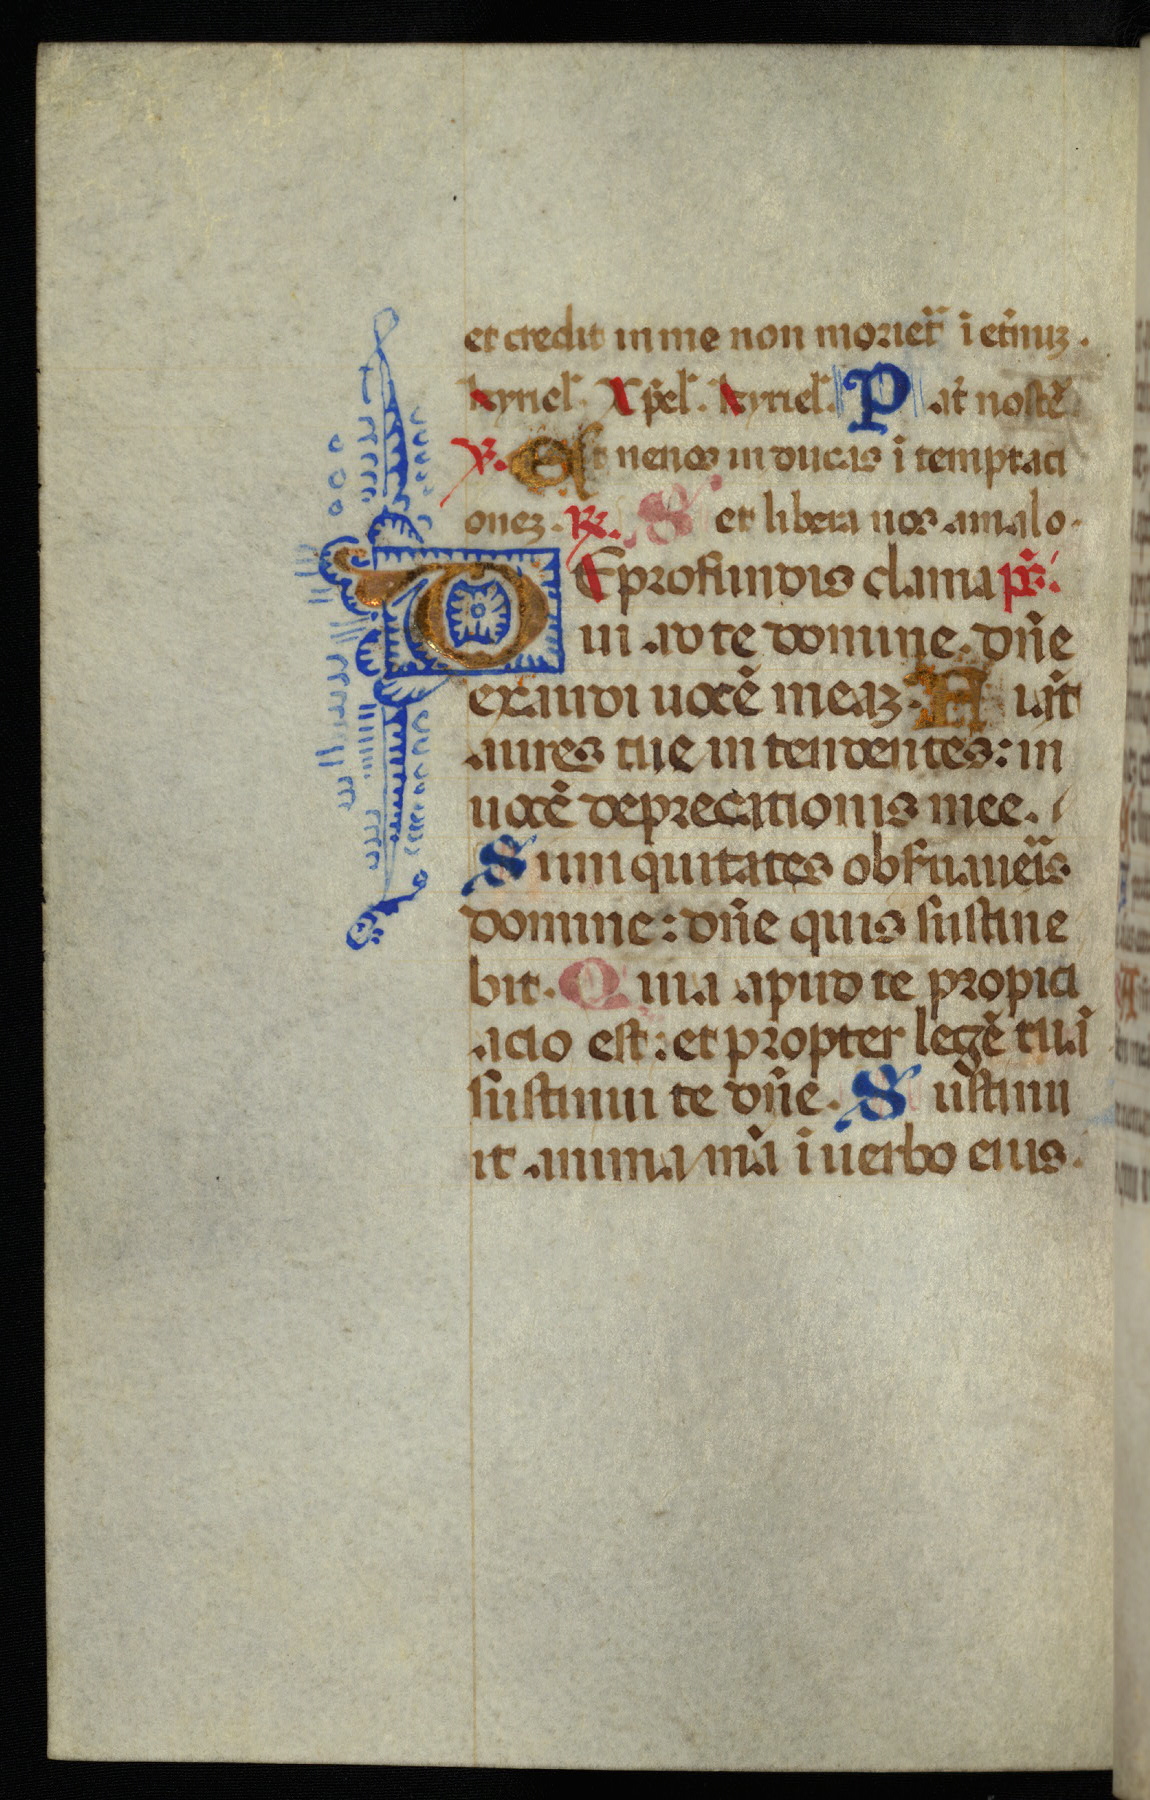 et credit in me non moriet᷑ ī et̃nuȝ.
kyriel̃. Xp̃el̃. kyriel̃. Pat̃ nostẽ
℣. Et ne nos inducas ī temptaci
oneȝ. ℟. S et libera nos amalo.
DE profundis clama p̃s.
ui ad te domine. dñe
exaudi uocẽ meaȝ. Fiãt
aures tue intendentes: in
uocẽ deprecationis mee.
Si iniquitates obs̃uaueĩs
domine: dñe quis sustine
bit. Quia apud te propici
acio est: et propter legẽ tuã
sustinui te dñe. Sustinu
it anima mã ī uerbo eius.